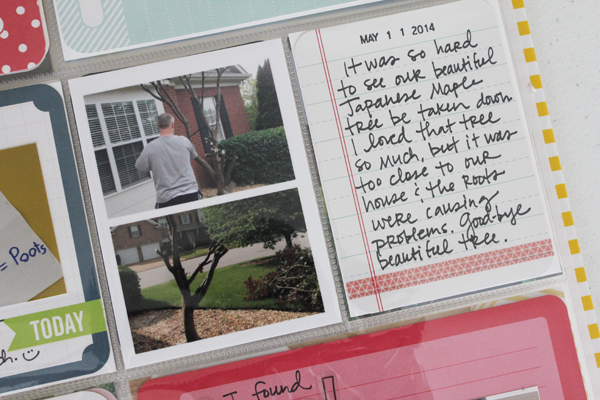 MAY 11 2014
It was so hard
to see our beautiful
Japanese Maple
tree be taken down
I loved that tree
so much, but it was
too close to our
house & the roots
were causing
problems. Goodbye
beautiful tree.
= Poots
TODAY
I found